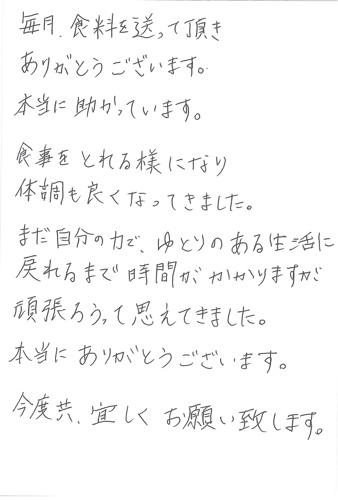 毎月、食料を送って頂き
ありがとうございます。
本当に助かっています。
食事をとれる様になり
体調も良くなってきました。
まだ自分の力で、ゆとりのある生活に
戻れるまで時間がかかりますが
頑張ろうって思えてきました。
本当にありがとうございます。
今度共、宜しくお願い致します。